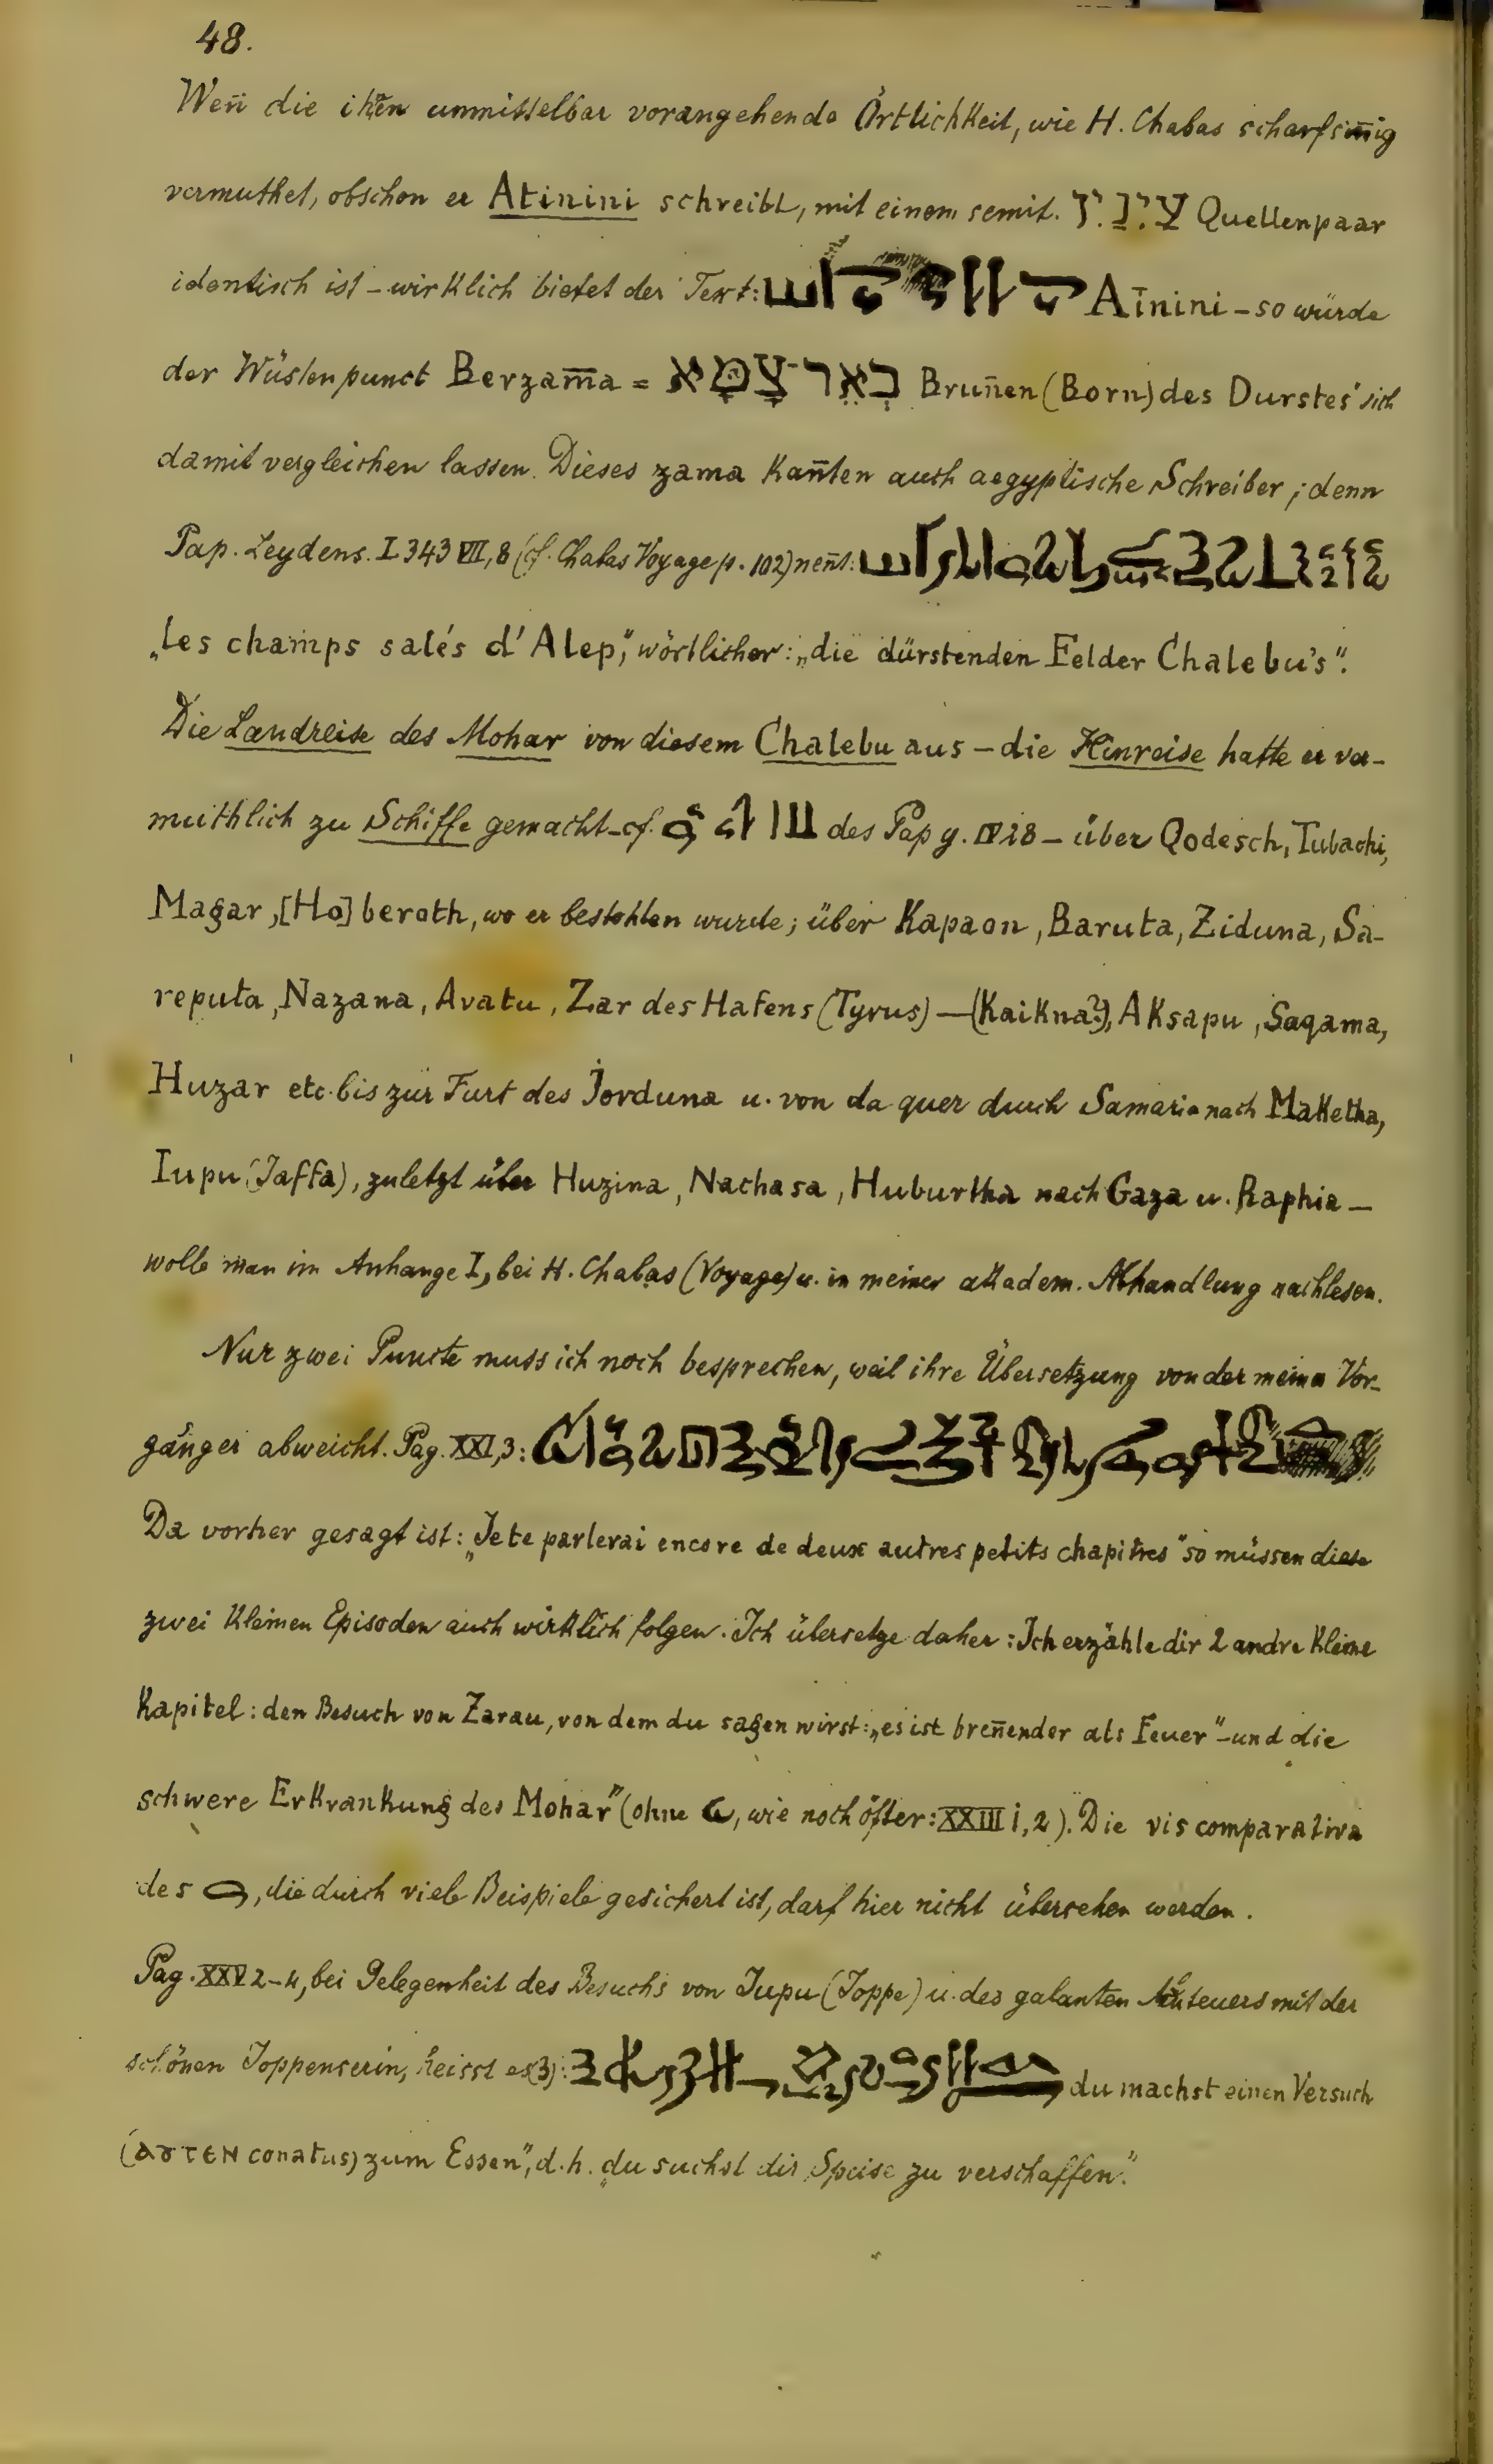 48.
Wen̄ die ihr unmittelbar vorangehende Örtlichkeit, wie H. Chabas scharfsin̄ig
vermuthet, obschon er Atinini schreibt, mit einem semit. Quellenpaar
identisch ist – wirklich bietet der Text: Aīnini – so würde
der Wüstenpunct Berzam̄a = בְאֵר־צָמָא Brun̄en (Born) des Durstes sich
damit vergleichen lassen. Dieses zama kan̄ten auch aegyptische Schreiber; denn
Pap. Leydens. I 343 VII, 8 (cf. Chabas Voyage p. 102) nen̄t:
„les champs salés d'Alep", wörtlicher: „die dürstenden Felder Chalebu's".
Die Landreise des Mohar von diesem Chalebu aus – die Hinreise hatte er ver-
muthlich zu Schiffe gemacht – cf. des Pap g. IV 28 – über Qodesch, Tubachi,
Magar, [Ho]beroth, wo er bestohlen wurde; über Kapaon, Baruta, Ziduna, Sa-
reputa, Nazana, Avatu, Zar des Hafens (Tyrus) — (Kaikna?), Aksapu, Saqama,
Huzar etc. bis zur Furt des Jorduna u. von da quer durch Samaria nach Maketha,
Iupu (Jaffa), zuletzt über Huzina, Nachasa, Huburtha nach Gaza u. Raphia –
wolle man im Anhange I, bei H. Chabas (Voyage) u. in meiner akadem. Abhandlung nachlesen.
Nur zwei Puncte muss ich noch besprechen, weil ihre Übersetzung von der meiner Vor-
gänger abweicht. Pag. XXI, 3:
Da vorher gesagt ist: „Je te parlerai encore de deux autres petits chapitres" so müssen diese
zwei kleinen Episoden auch wirklich folgen. Ich übersetze daher: Ich erzähle dir 2 andre kleine
Kapitel: den Besuch von Zarau, von dem du sagen wirst: „es ist bren̄ender als Feuer" – und die
schwere Erkrankung des Mohar" (ohne , wie noch öfter: XXIII 1, 2). Die vis comparativa
des , die durch viele Beispiele gesichert ist, darf hier nicht übersehen werden.
Pag. XXV 2–4, bei Gelegenheit des Besuchs von Jupu (Joppe) u. des galanten Abenteuers mit der
schönen Joppenserin, heisst es (3): du machst einen Versuch
( conatus) zum Essen", d. h. „du suchst dir Speise zu verschaffen".